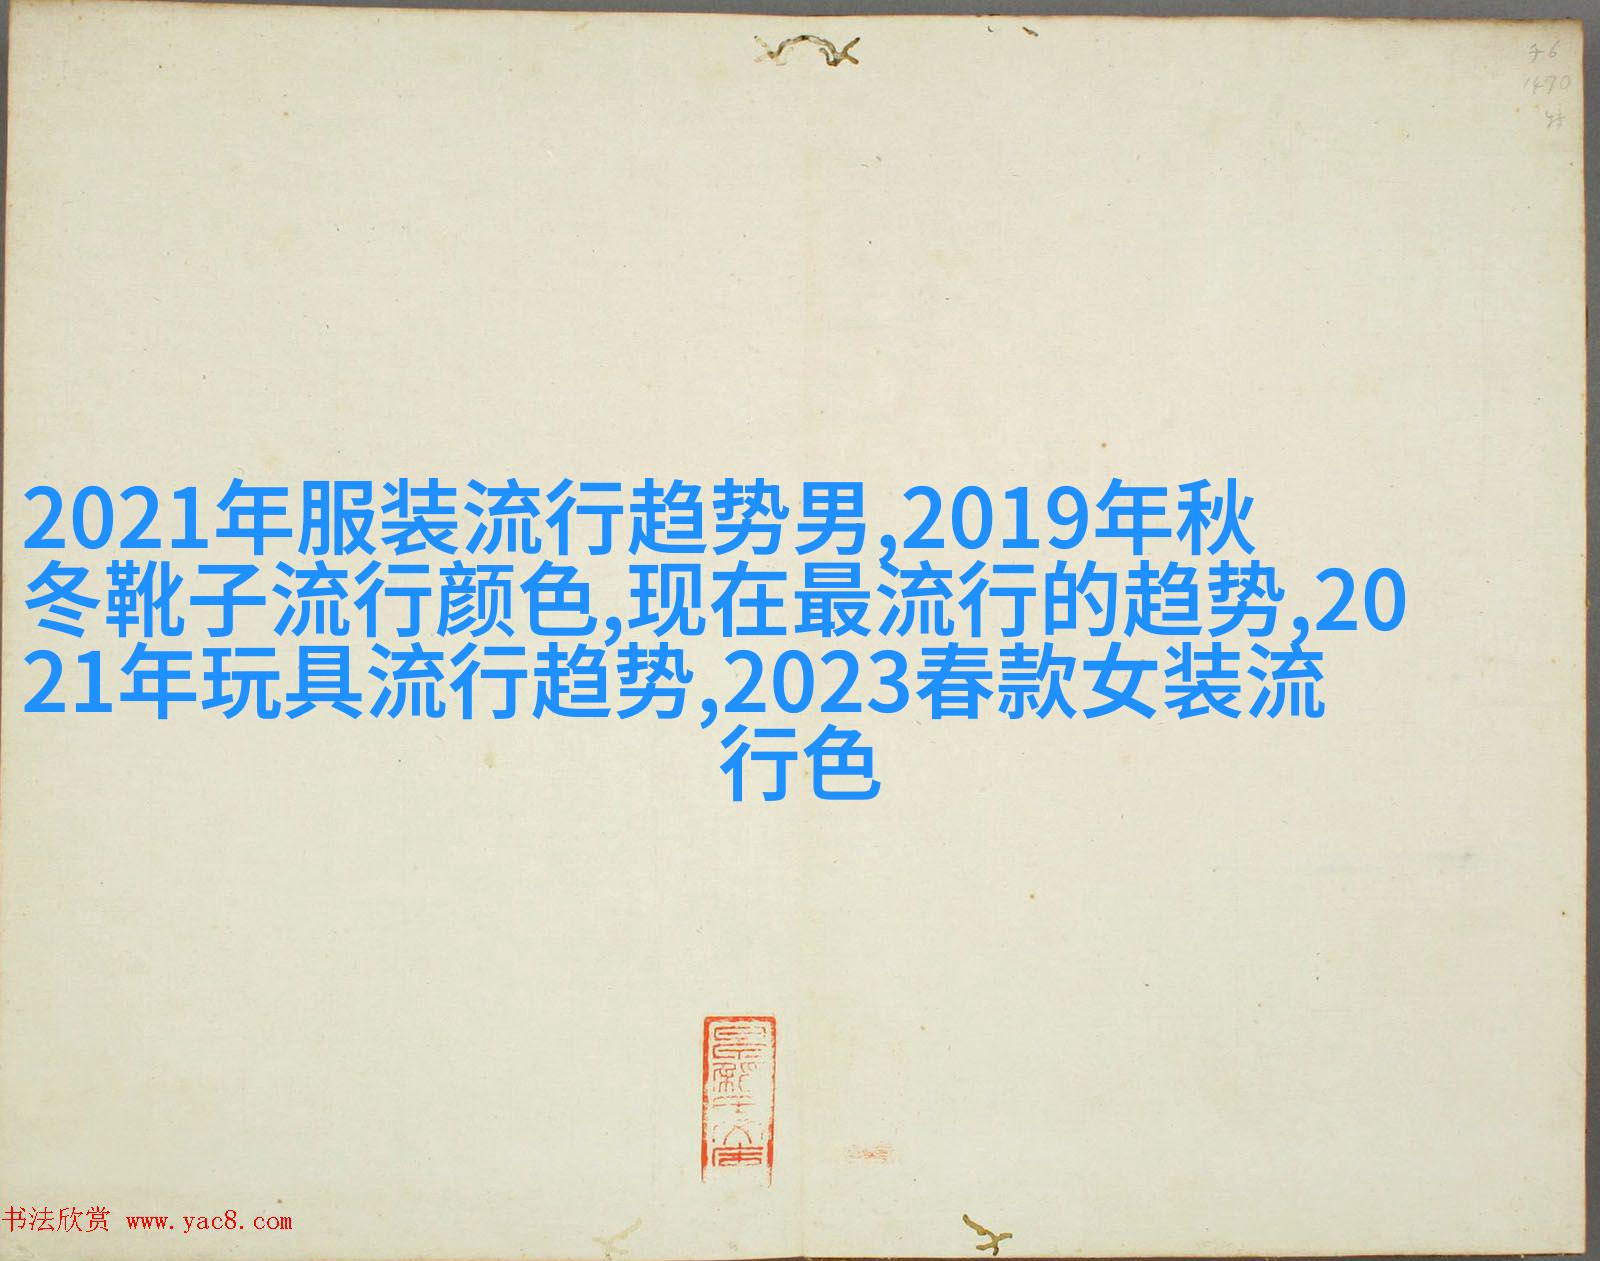 1470
2021年服装流行趋势男,2019年秋
冬靴子流行颜色,现在最流行的趋势,20
21年玩具流行趋势,2023春款女装流
行色
书法欣赏 www.yac8.com